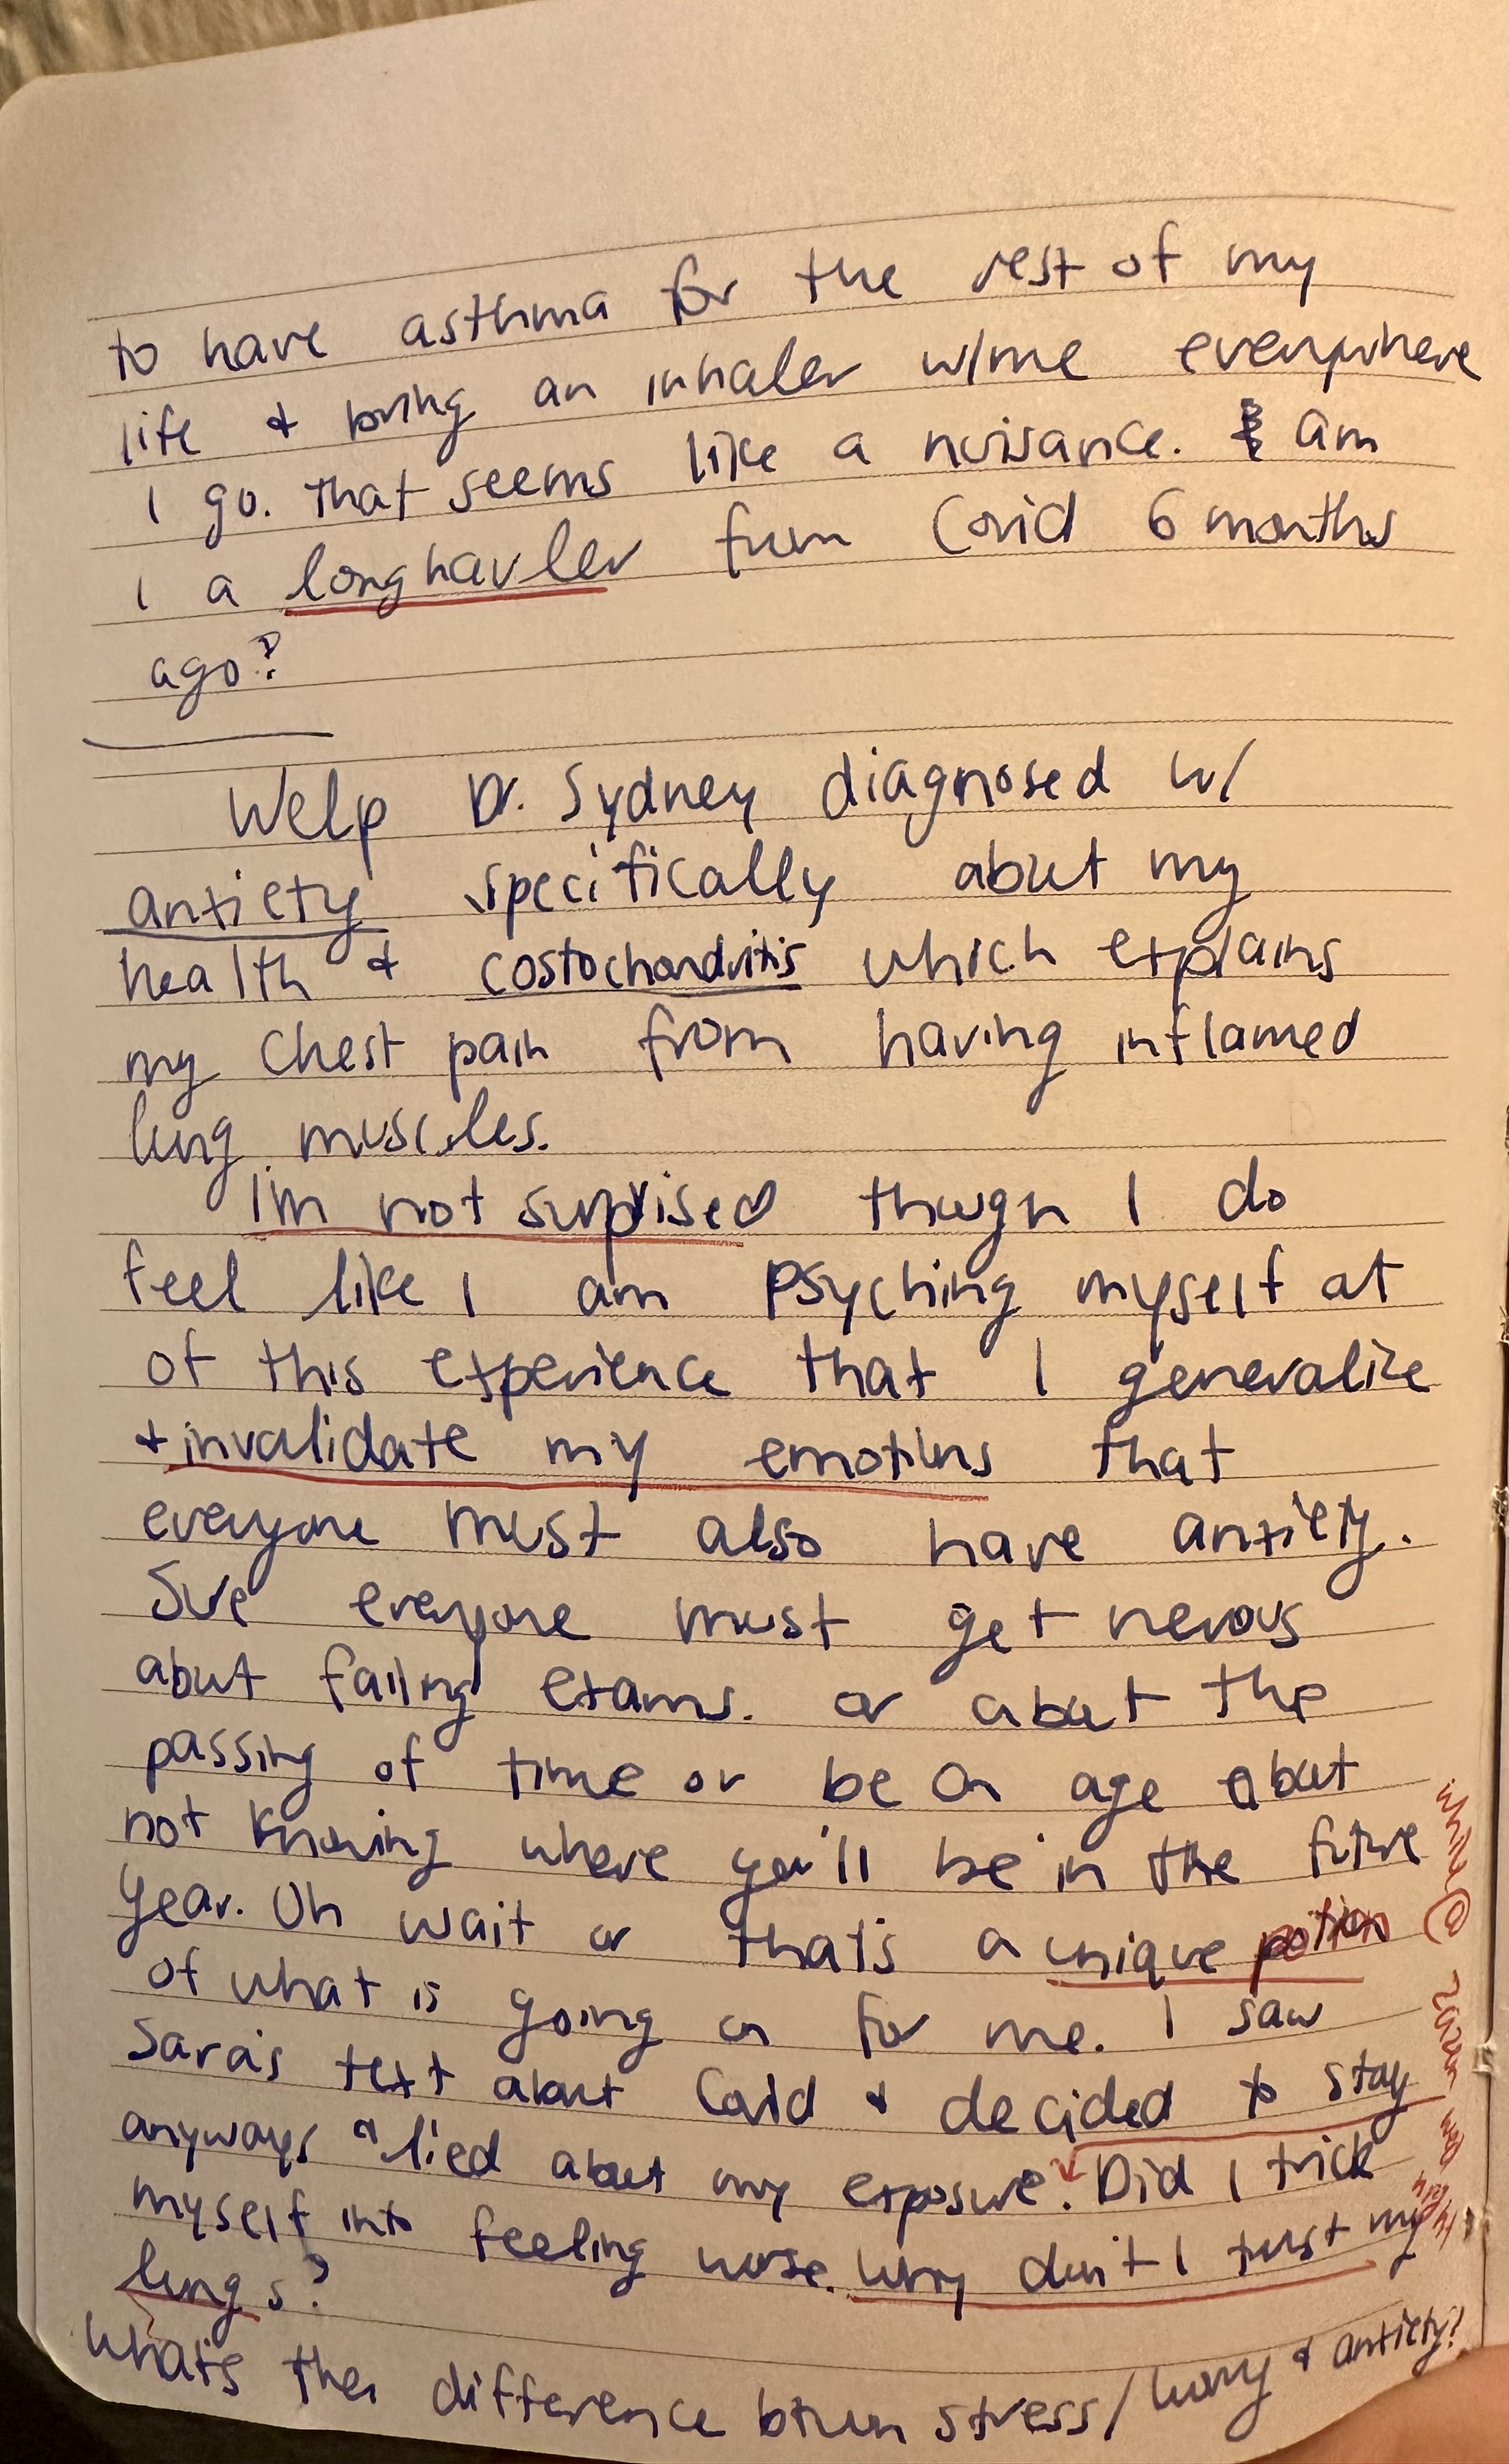 to have asthma for the rest of my
life & bring an inhaler w/me everywhere
I go. That seems like a nuisance. Am
I a longhauler from Covid 6 months
ago?
Welp Dr. Sydney diagnosed w/
anxiety specifically about my
health & costochondritis which explains
my chest pain from having inflamed
lung muscles.
I'm not surprised though I do
feel like I am psyching myself at
of this experience that I generalize
& invalidate my emotions that
everyone must also have anxiety.
Sure everyone must get nervous
about failing exams. or about the
passing of time or be on age about
not knowing where you'll be in the future
year. Oh wait or that's a unique potion
of what is going on for me. I saw
Sara's text about Covid & decided to stay
anyways & lied about my exposure. Did I trick
myself into feeling worse. Why don't I trust my
lungs?
What's the difference btwn stress/worry & anxiety?
while @